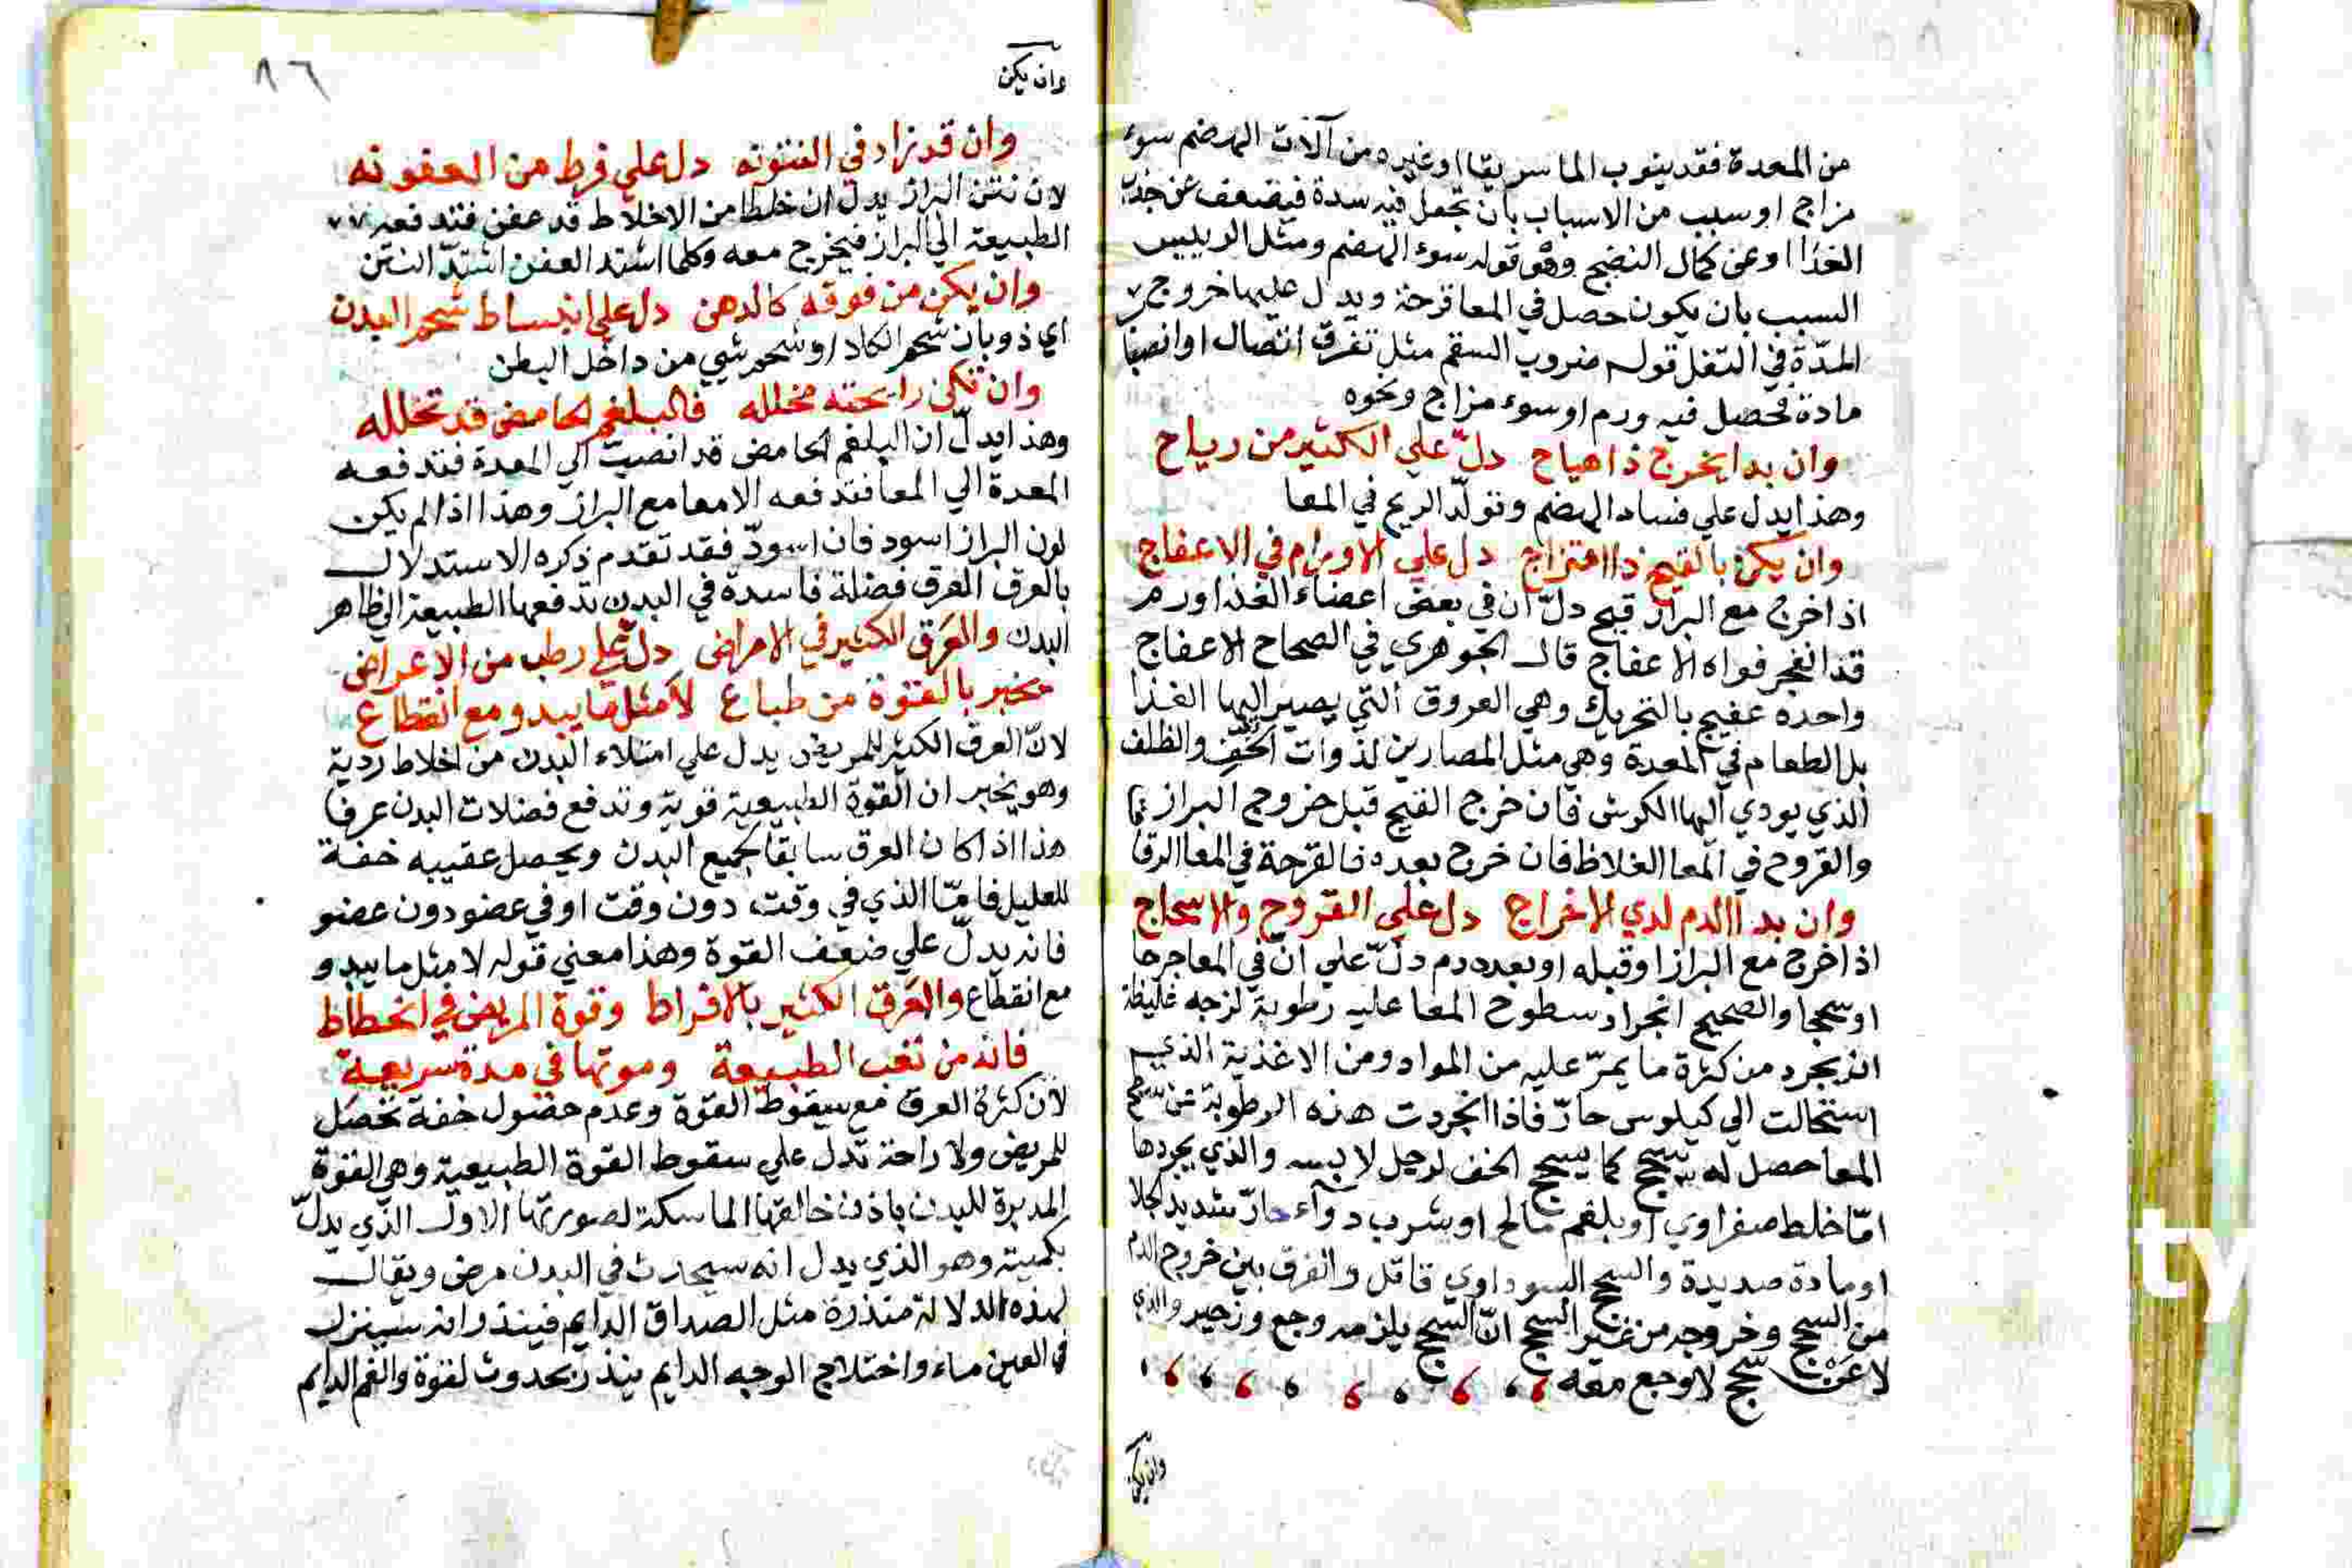 من المعدة فقد ينوب الماسريقا اوغيره من آلات الهضم سوء
مزاج او سبب من الاسباب بان تجعل فيه سدة فيضعف عن جذب
الغذا اوعن كمال النضج وهو قوله سوء الهضم ومثل الرييس
السبب بان يكون حصل في المعا قرحة ويدل عليها خروج
المدّة في الثفل قوله ضروب السقم مثل تفرق اتصال اوانصبا
مادة فحصل فيه ورم اوسوء مزاج ونحوه
وان بدا يخرج ذا هياج دلّ علي الكثير من رياح
وهذا يدل علي فساد الهضم وتولّد الريح في المعا
وان يكن بالقيح ذا امتزاج دل علي الاورام في الاعفاج
اذا خرج مع البراز قيح دلّ ان في بعض اعضاء الغذا ورم
قد انفجر فواه الاعفاج قال الجوهري في الصحاح الاعفاج
واحده عفيج بالتحريك وهي العروق التي يصير اليها الغذا
بل الطعام في المعدة وهي مثل المصارين لذوات الخف والظلف
الذي يودي اليها الكرش فان خرج القيح قبل خروج البراز
والقروح في المعا الغلاظ فان خرج بعده فالقرحة في المعا الرقا
وان بدا الدم لدي الاخراج دل علي القروح والاسحاج
اذا خرج مع البراز اوقبله اوبعده دم دلّ علي انّ في المعا جرحا
اوسحجا والصحيح انجراد سطوح المعا عليه رطوبة لزجه غليظة
انجرد من كثرة ما يمرّ عليه من المواد ومن الاغذية الذي
استحالت الي كيلوس حارّ فاذا انجردت هذه الرطوبة عن سطح
المعا حصل له سحج كما يسحج الخف لرجل لابسه والذي يجردها
امّا خلط صفراوي اوبلغم مالح اوشرب دوآء حارّ شديد الجلا
اومادة صديدة والسحج السوداوي قاتل والفرق بين خروج الدم
من السحج وخروجه من غير السحج انّ السحج يلزمه وجع وزحير والذي
لا عن سحج لاوجع معه
وان يكن
٨٦
وان يكن
وان قد زاد في النتونه دل علي فرط من العفونه
لان نتن البراز يدل ان خلطا من الاخلاط قد عفن فتدفعه
الطبيعة الي البراز فيخرج معه وكلما اشتد العفن اشتدّ النتن
وان يكن من فوقه كالدهن دل علي انبساط شحم البدن
اي ذوبان شحم الكلا او شحم شيي من داخل البطن
وان تكن رايحته مخلله فالبلغم الحامض قد تخلله
وهذا يدلّ ان البلغم الحامض قد انصبّ الي المعدة فتدفعه
المعدة الي المعا فتدفعه الامعا مع البراز وهذا اذا لم يكن
لون البراز اسود فان اسودّ فقد تقدم ذكره الاستدلال
بالعرق العرق فضلة فاسدة في البدن تدفعها الطبيعة الي ظاهر
البدن والعَرق الكثير في الامراض دل علي رطب من الاعراض
مخبر بالقوة من طباع لا مثل ما يبدو مع انقطاع
لانّ العرق الكثير للمريض يدل علي امتلاء البدن من اخلاط ردية
وهو يخبر ان القوة الطبيعية قوية وتدفع فضلات البدن عرقا
هذا اذا كان العرق سابقا لجميع البدن ويحصل عقيبه خفة
للعليل فامّا الذي في وقت دون وقت اوفي عضو دون عضو
فانه يدلّ علي ضعف القوة وهذا معني قوله لا مثل ما يبدو
مع انقطاع والعَرق الكثير بالافراط وقوة المريض في انحطاط
فانه من تعب الطبيعة وموتها في مدة سريعة
لان كثرة العرق مع سقوط القوة وعدم حصول خفة تحصل
للمريض ولا راحة تدل علي سقوط القوة الطبيعية وهي القوة
المدبرة للبدن باذن خالقها الماسكة لصورتها الاول الذي يدلّ
بكميته وهو الذي يدل انه سيحدث في البدن مرض ويقال
لهذه الدلالة منذرة مثل الصداق الدايم فينذر انه سينزل
في العين ماء واختلاج الوجه الدايم ينذر بحدوث لقوة والغم الدايم
ty